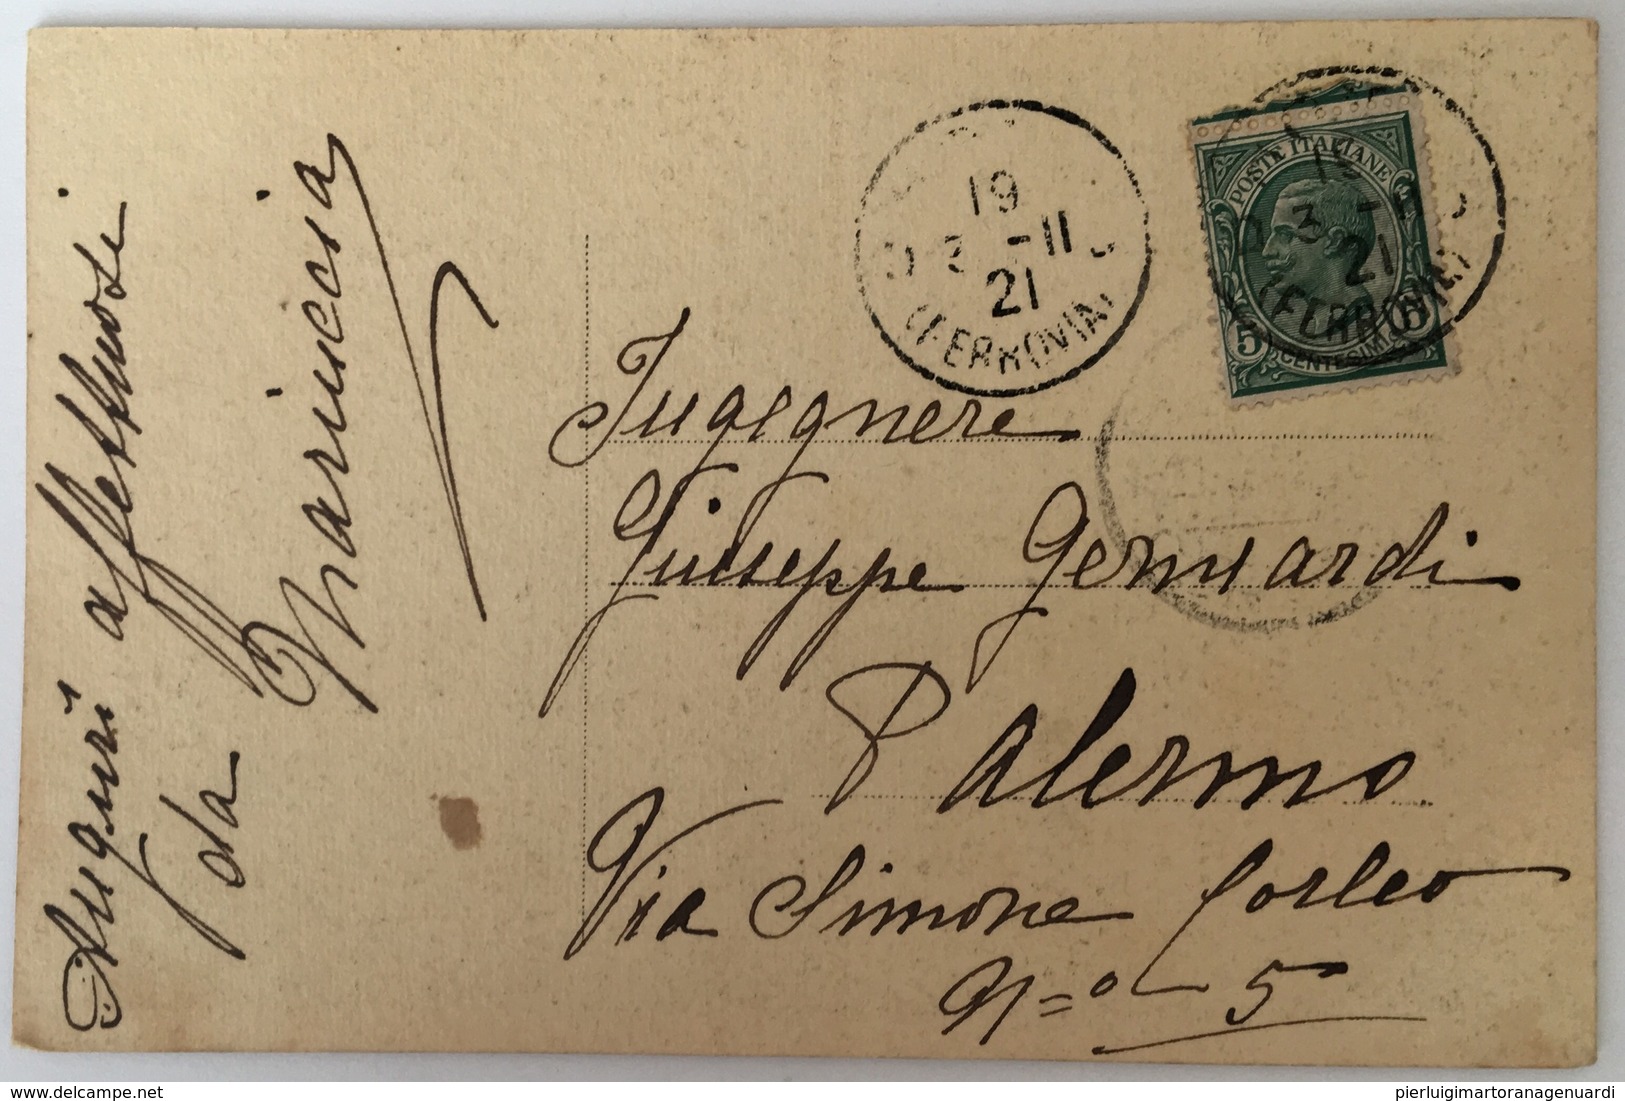 Auguri affettuosi
da Mariuccia
19
3 -11
21
(FERROVIA)
POSTE ITALIANE
19
3 -11
21
(FERROVIA)
5 5
CENTESIMI
Ingegnere
Giuseppe Genuardi
Palermo
Via Simone Corleo
N=º 5
pierluigimartoranagenuardi